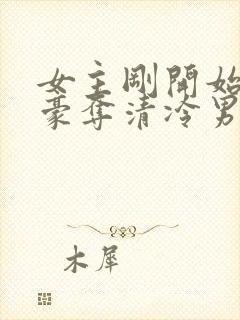 女主剛開始
豪奪清冷男
木犀